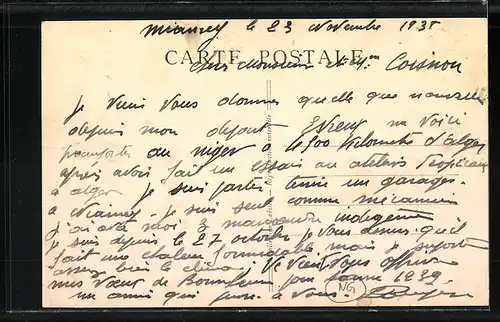 Niamey le 23 Novembre 1938
CARTE POSTALE
Cher Monsieur et M. Coisnon
Je viens vous donner quelle que nouvelle
depuis mon depart Evreux me voici
au niger à 4500 kilometre d'alger
après avoir fait un essai au ateliers
à alger je suis parti tenir un garage
à Niamey. je suis seul comme mécanicien
j'ai avec moi 3 indigène
je suis depuis le 27 octobre je vous dirai qu'il
fait une chaleur formidable mais je supporte
assez bien le climat. Je viens vous offrir
mes vœux de Bonne pour 1939
un ami qui pense à vous.
NG